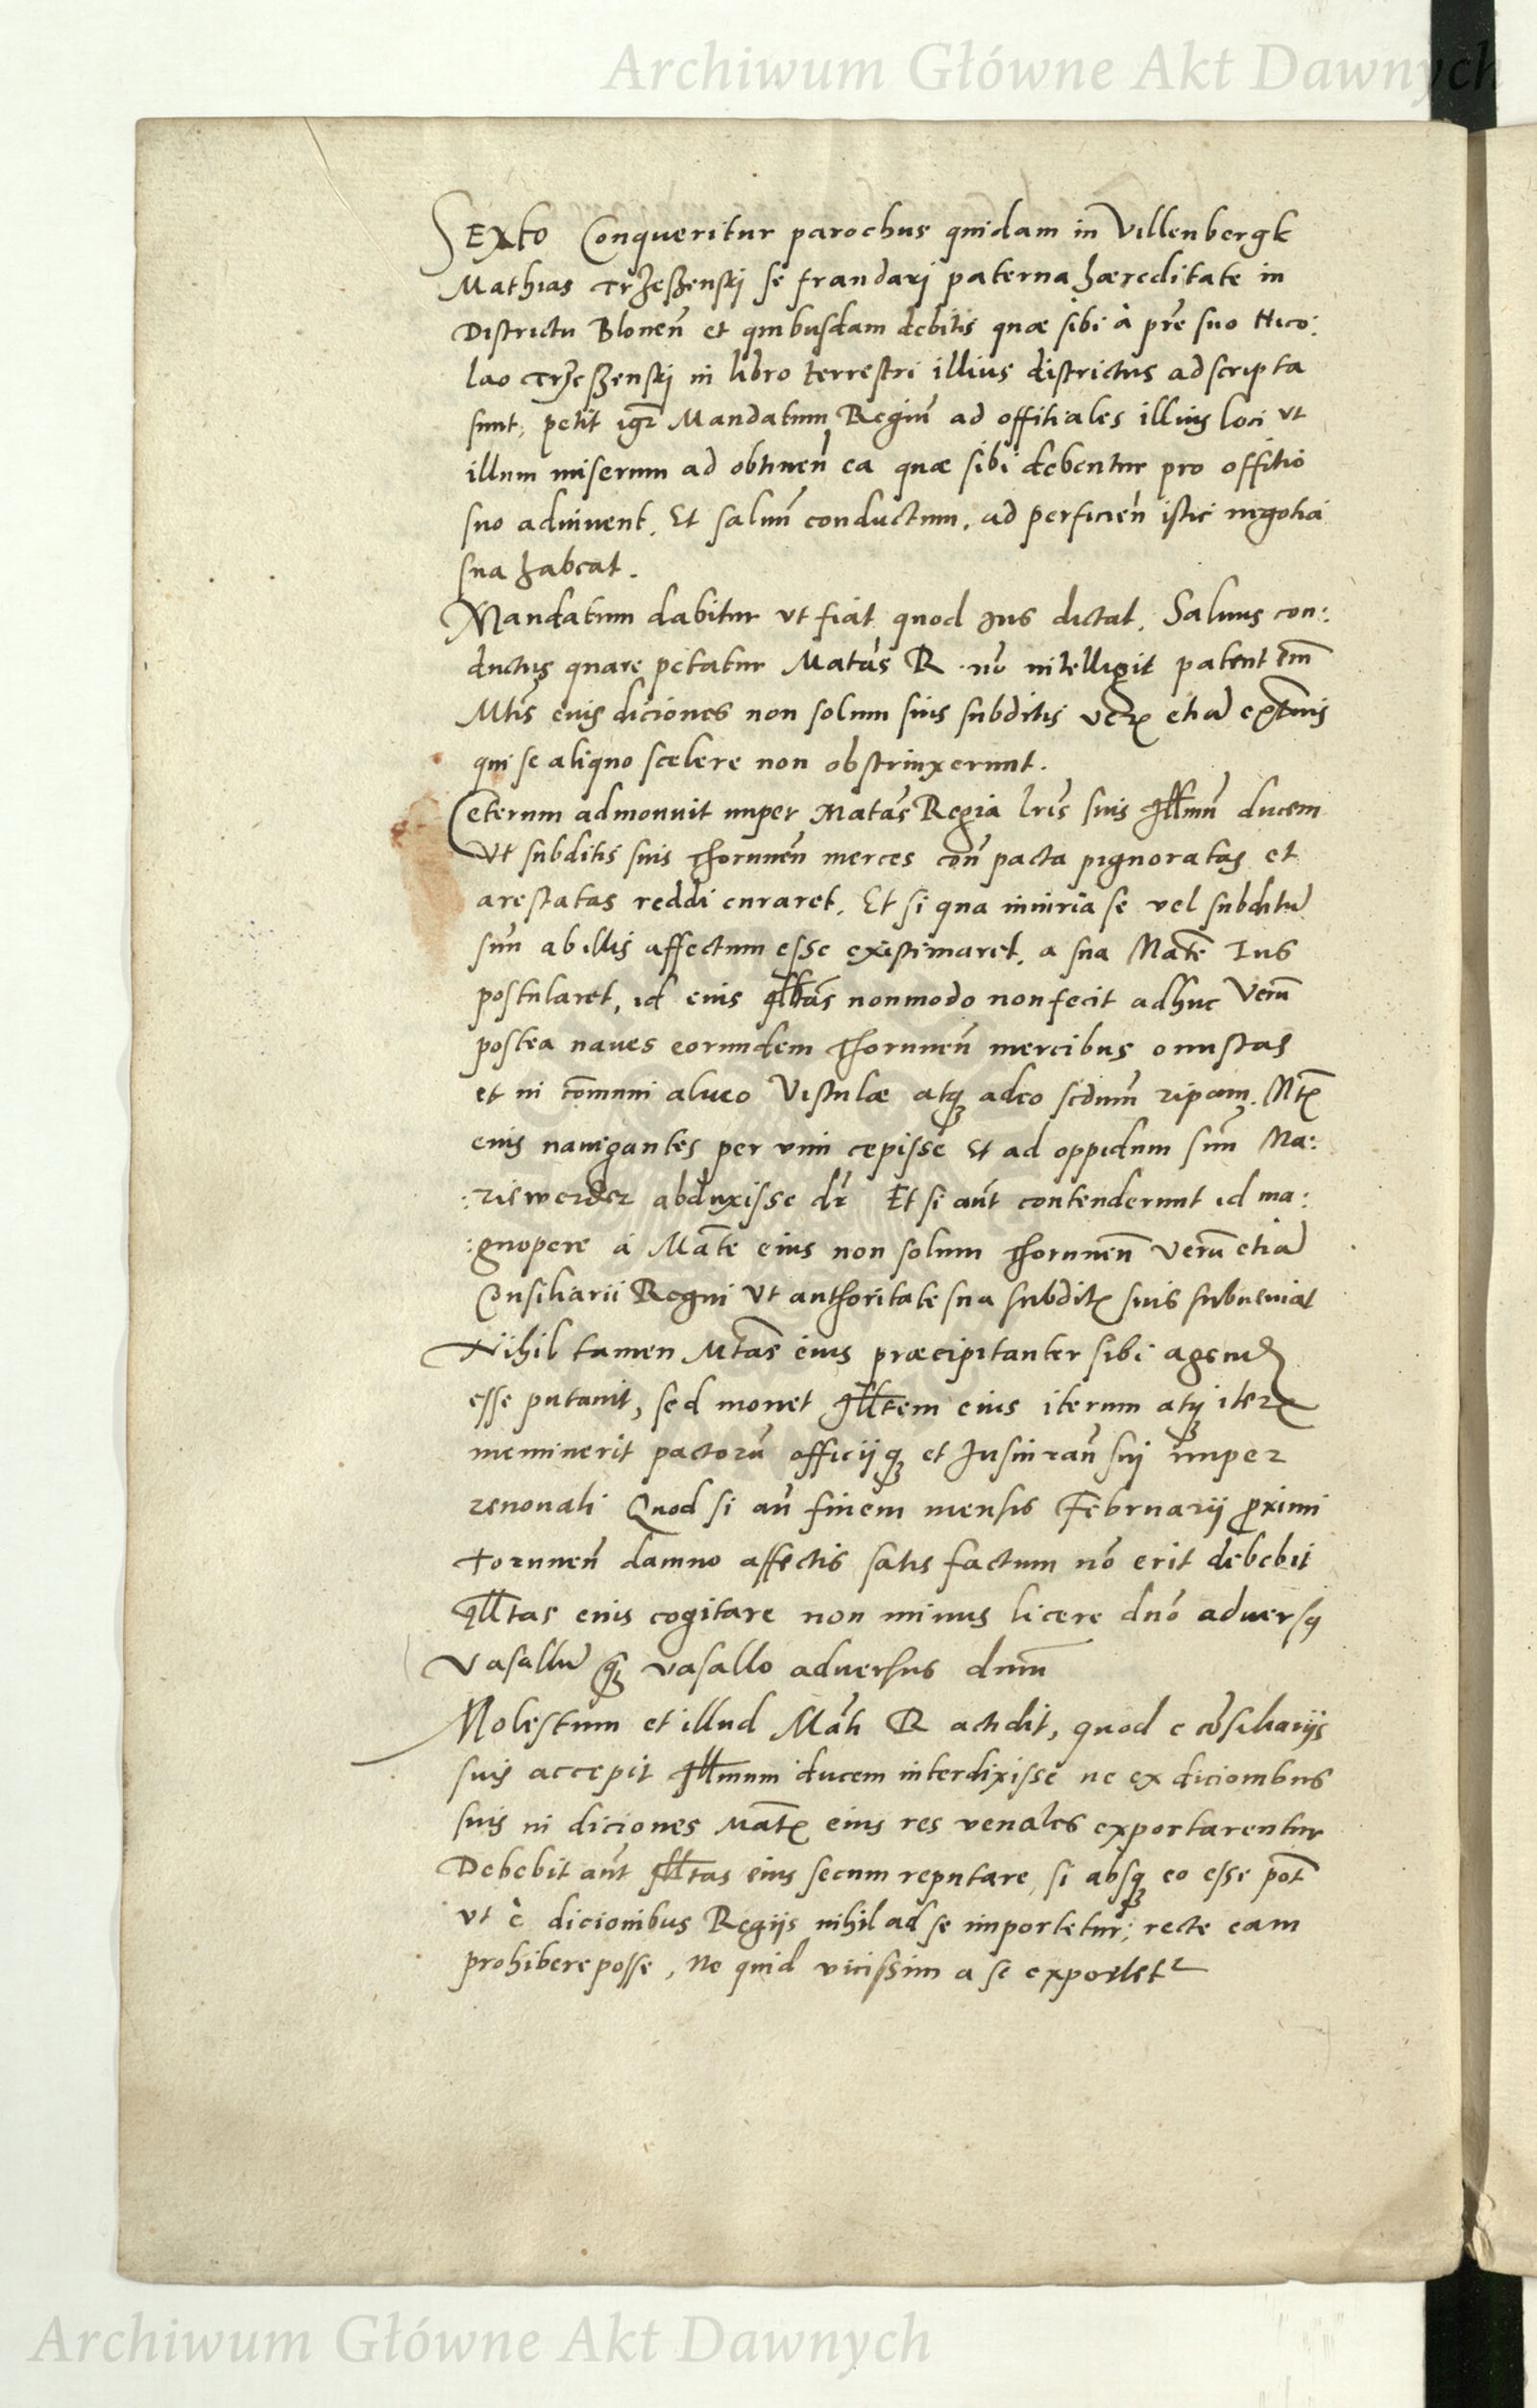 Archiwum Główne Akt Dawnych
Sexto Conqueritur parochus quidam in Villenbergk
Mathias Trzeszenskj se fraudarj paterna hæreditate in
Districtu Blonen̄ et quibusdam debitis quæ sibi à pr̄e suo Nico:
lao Trzeszenskj in libro terrestri illius districtus adscripta
sunt, petit igr̄ Mandatum Regiū ad offitiales illius loci vt
illum miserum ad obtinen̄ ea quæ sibi debentur pro offitio
suo adiuuent. Et saluū conductum, ad perficien̄ istic negotia
sua habeat.
Mandatum dabitur vt fiat quod ius dictat. Saluus con:
ductus quare petatur Matās R. nō intelligit patent em̄
Mtis̄ eius diciones non solum suis subditis verū etiā exteris
qui se aliquo scelere non obstrinxerunt.
Ceterum admonuit nuper Matās Regia lr̄is suis Illmū ducem
Vt subditis suis Thorunen̄ merces con̄ pacta pignoratas et
arestatas reddi curaret. Et si qua iniuria se vel subditū
suū ab illis affectum esse existimaret, a sua Mate̅ Ius
postularet, id eius Illtās nonmodo non fecit adhuc Verū
postea naues eorundem Thorunen̄ mercibus onustas
et in com̄uni alueo Vistulæ atq̨ adeo scdum̄ ripam Mtis̄
eius nauigantes per vim cepisse Et ad oppidum suū Ma:
:riswerder abduxisse dr̄ Et si aūt contenderunt id ma:
:gnopere á Mate̅ eius non solum Thorunen̄ Verū etiā
Consiliarii Regni Vt authoritate sua subditis suis subueniat
Nihil tamen Mtās eius præcipitanter sibi agendū
esse putauit, sed monet Illtem eius iterum atq̨ iterū
meminerit pactorū officijq̨ et Jusiurān sui nuper
renouati Quod si an̄ finem mensis Februarij proximi
Torunen̄ damno affectis satis factum nō erit debebit
Illtas eius cogitare non minus licere dnō aduersq̨
Vasallū q̨ vasallo aduersus dnum̄
Molestum et illud Matī R accidit, quod e cōsiliarijs
suis accepit Illmum ducem interdixisse ne ex dicionibus
suis in diciones Matis̄ eius res venales exportarentur
Debebit aūt Illtas eius secum reputare, si absq̨ eo esse pot̄
vt è dicionibus Regijs nihil ad se importetur; recte eam
prohibere posse, Ne quid vicissim a se exportetr
Archiwum Główne Akt Dawnych